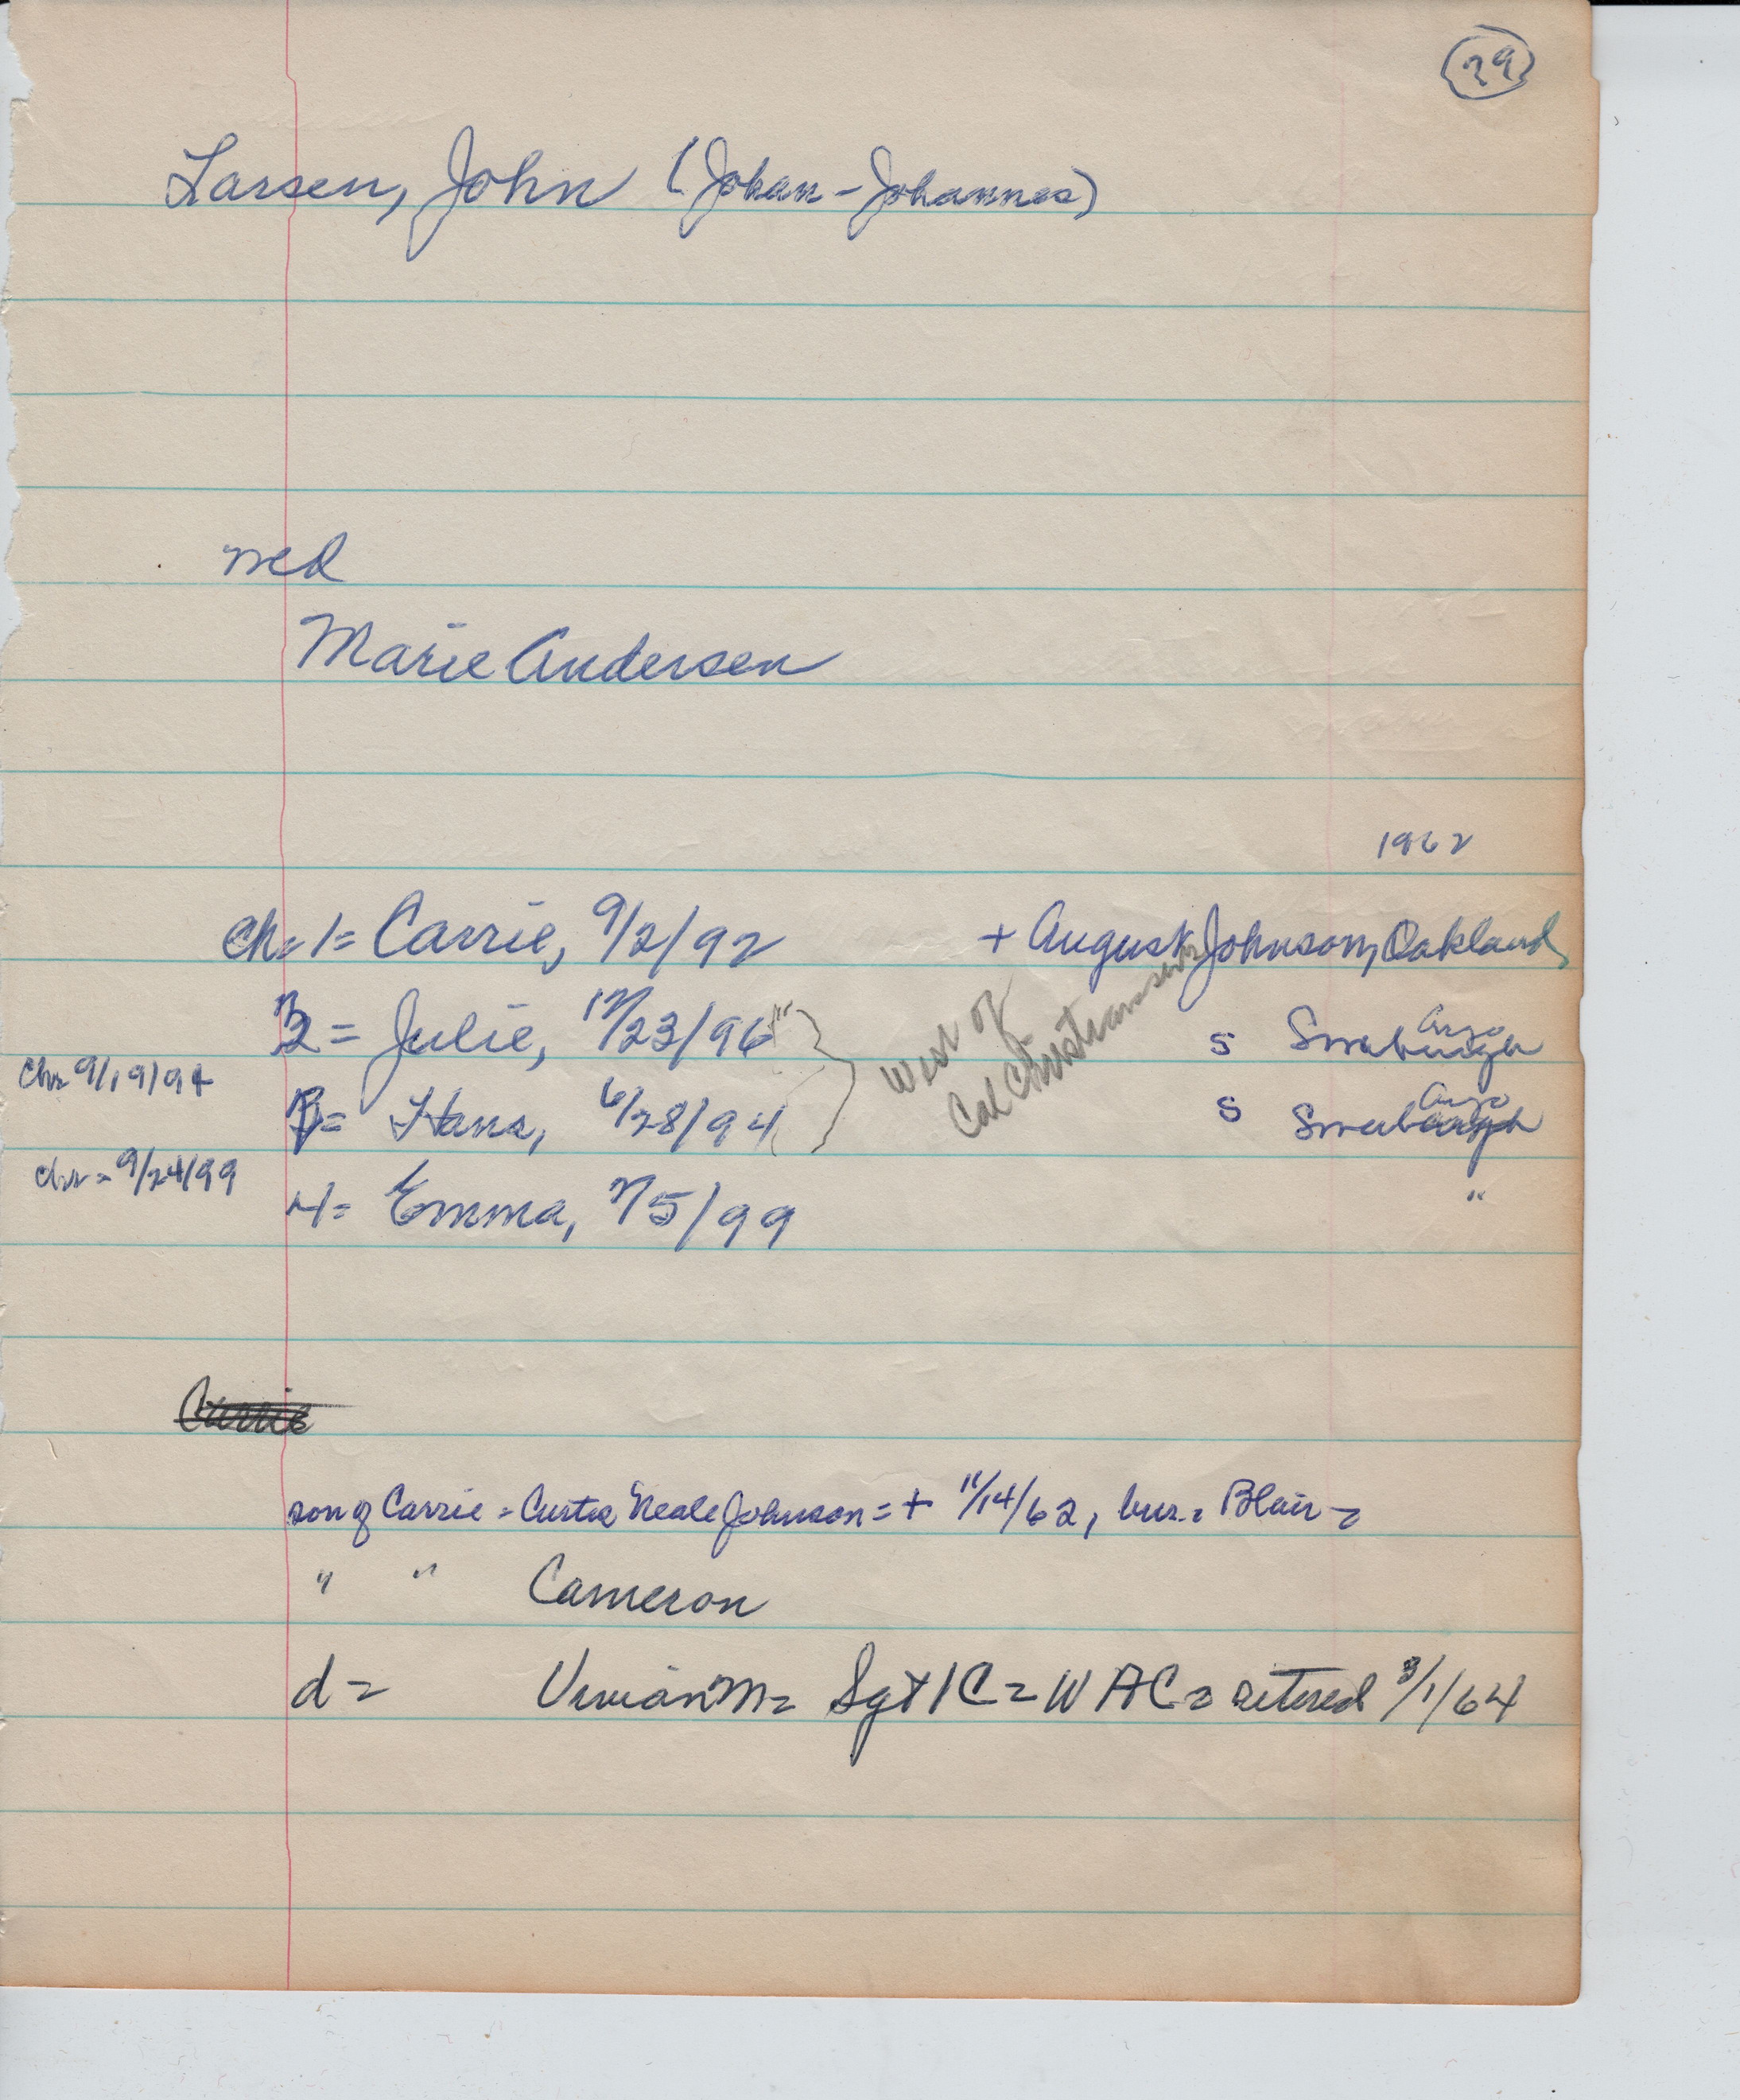 29
Larsen, John (Johan - Johannes)
med
Marie Andersen
1962
ch. 1 = Carrie, 9/2/92 + August Johnson, Oakland
= Julie, 12/23/96 " S Argo
chr 9/19/94
= Hans, 6/28/94 S Argo
West of
Cal Christiansens
chr = 9/24/99
4 = Emma, 7/5/99 "
Carrie
son of Carrie = Curtis Neale Johnson = + 11/14/62, bur. = Blair =
" " Cameron
d = Vivian M = Sgt 1C = WAC = retired 3/1/64